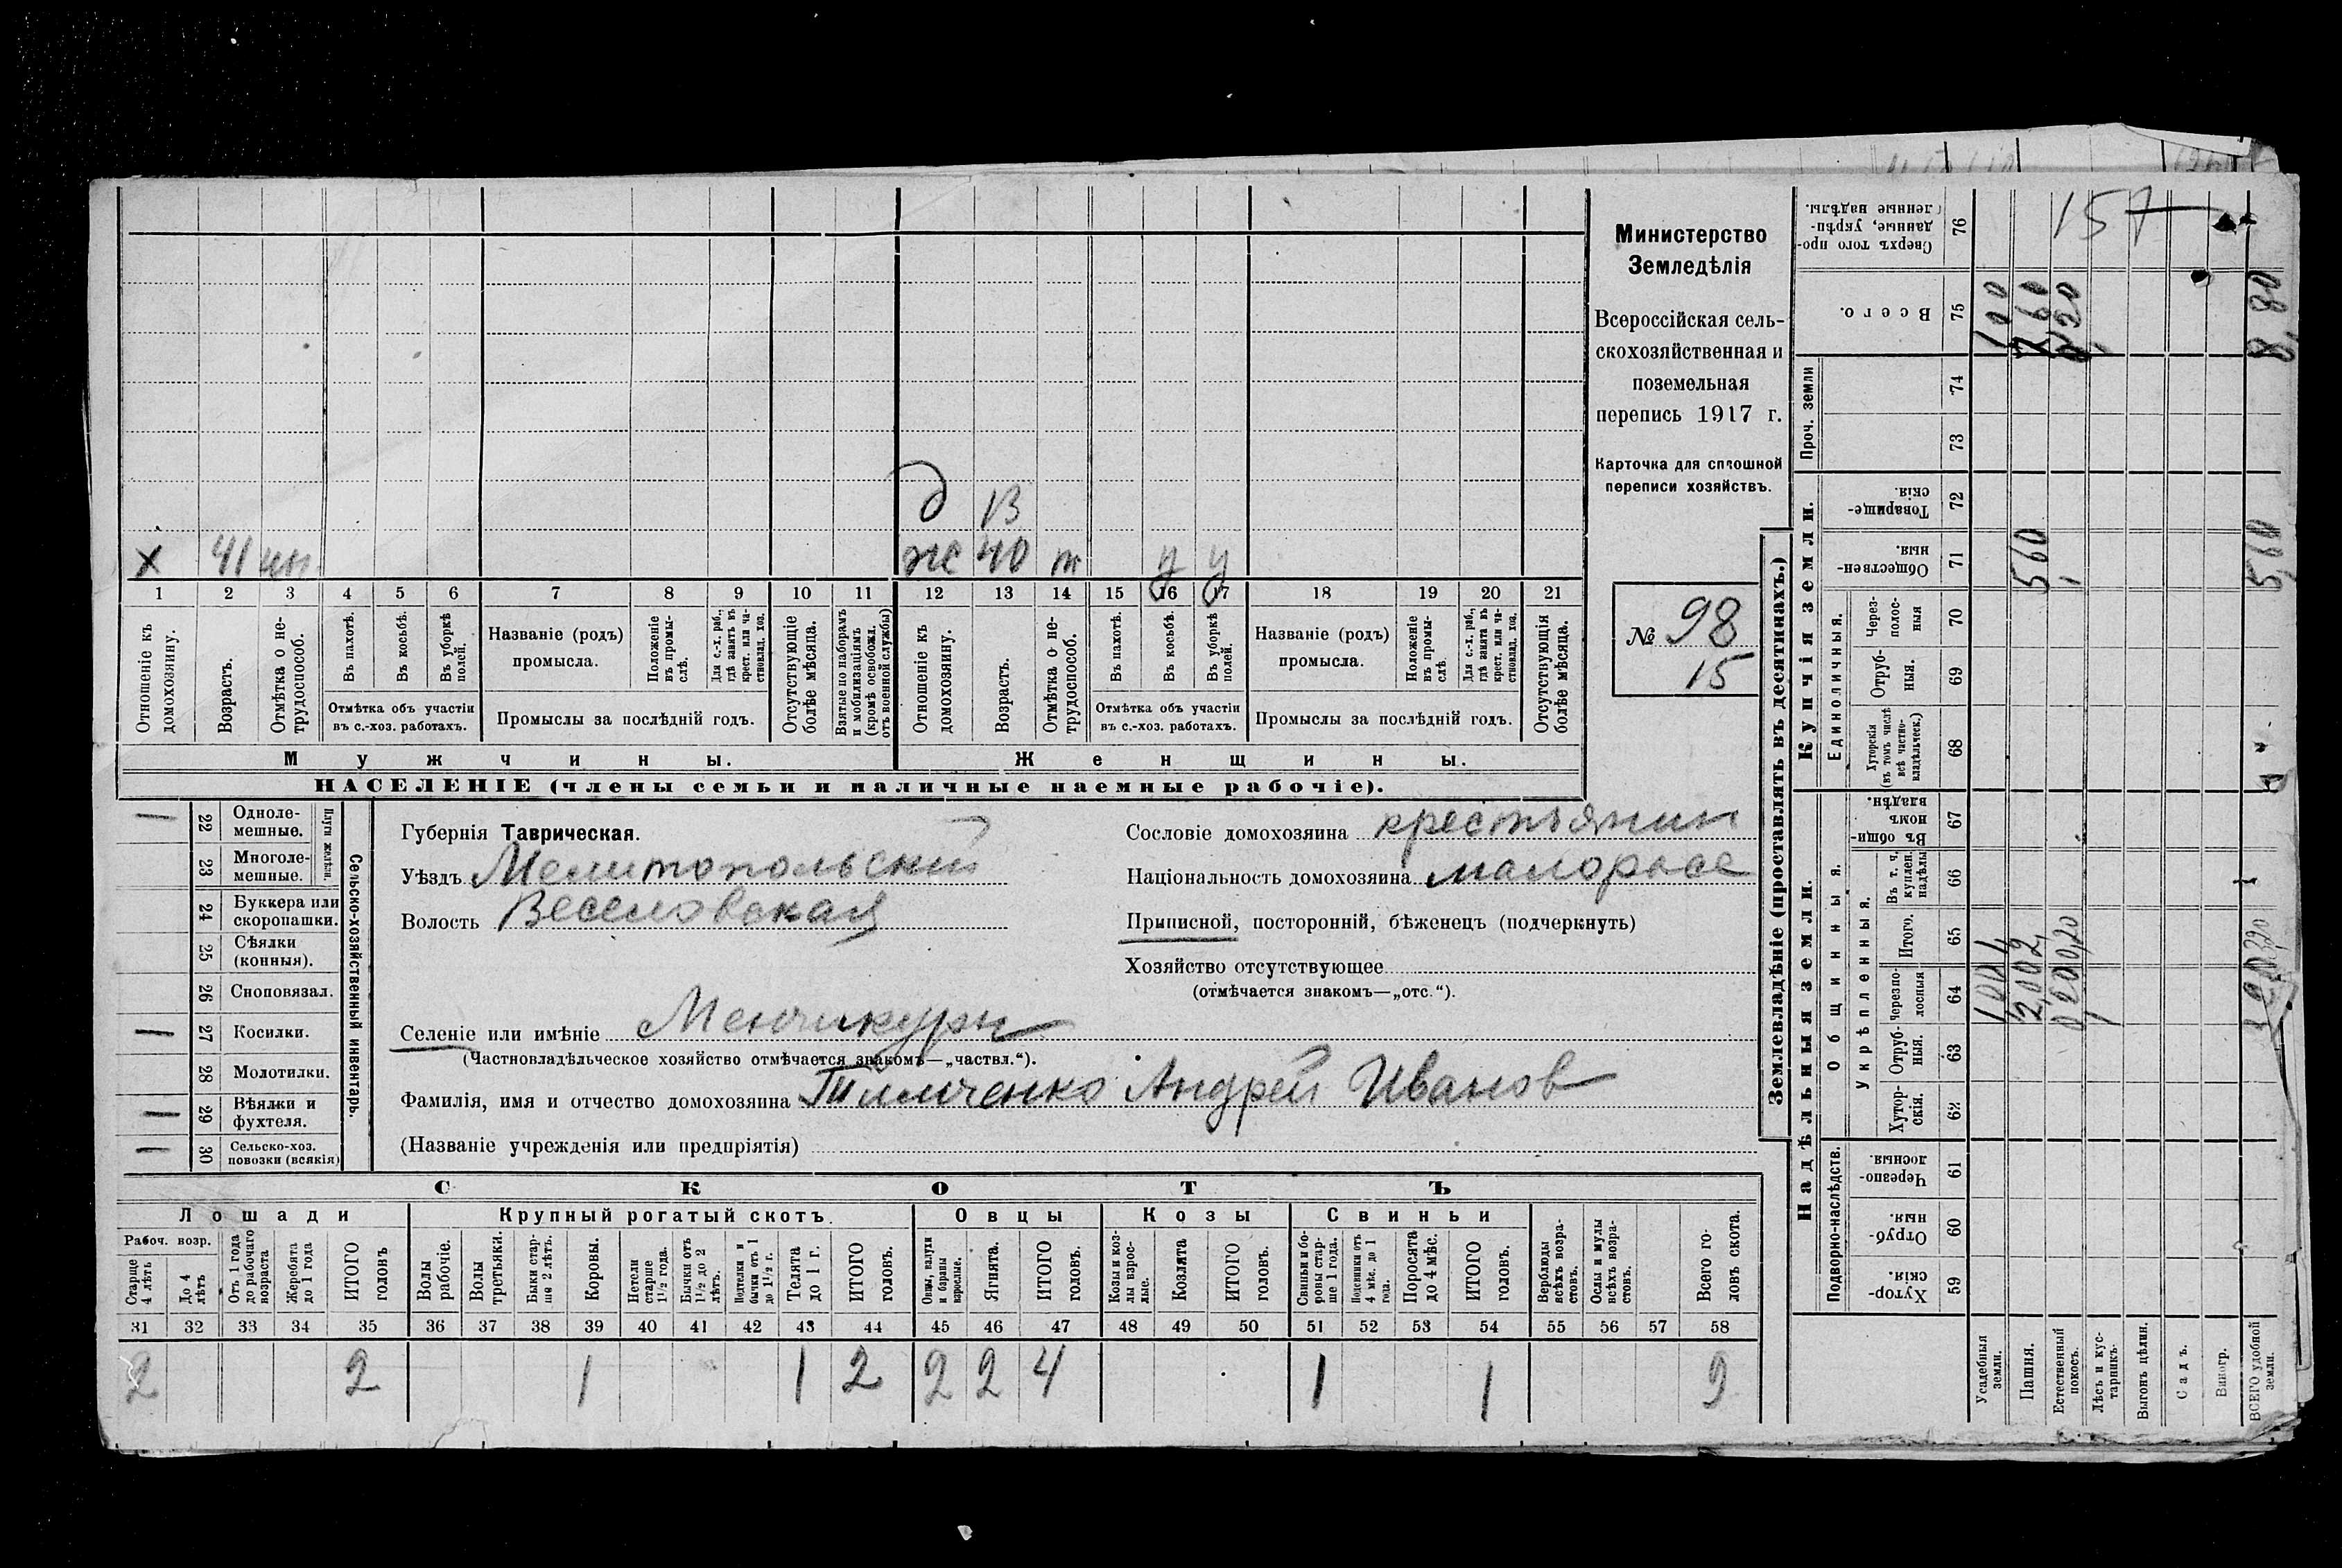 Министерство
Земледѣлія
Всероссійская сель-
скохозяйственная и
поземельная
перепись 1917 г.
Карточка для сплошной
переписи хозяйствъ.
№ 98
15
д 13
х 41
ж 40 у у
1 2 3 4 5 6 7 8 9 10 11 12 13 14 15 16 17 18 19 20 21
Отношеніе къ домохозяину.
Возрастъ.
Отмѣтка о не-трудоспособ.
Въ пахотѣ.
Въ косьбѣ.
Въ уборкѣ полей.
Отмѣтка объ участіи
въ с.-хоз. работахъ.
Названіе (родъ)
промысла.
Положеніе въ промы-слѣ.
Для с.-х. раб., гдѣ занятъ въ крест. или ча-стновлад. хоз.
Промыслы за послѣдній годъ.
Отсутствующіе болѣе мѣсяца.
Взятые по наборамъ и мобилизаціямъ (кромѣ освобожд. отъ военной службы)
Отношеніе къ домохозяину.
Возрастъ.
Отмѣтка о не-трудоспособ.
Въ пахотѣ.
Въ косьбѣ.
Въ уборкѣ полей.
Отмѣтка объ участіи
въ с.-хоз. работахъ.
Названіе (родъ)
промысла.
Положеніе въ промы-слѣ.
Для с.-х. раб., гдѣ занята въ крест. или ча-стновлад. хоз.
Промыслы за послѣдній годъ.
Отсутствующія болѣе мѣсяца.
Мужчины.
Женщины.
НАСЕЛЕНІЕ (члены семьи и наличные наемные рабочіе).
Сельско-хозяйственный инвентарь.
Плуги желѣзн.
22 Одноле-мешные.
23 Многоле-мешные.
24 Буккера или скоропашки.
25 Сѣялки (конныя).
26 Сноповязал.
27 Косилки.
28 Молотилки.
29 Вѣялки и фухтеля.
30 Сельско-хоз. повозки (всякія)
Губернія Таврическая.
Уѣздъ Мелитопольскій
Волость Веселовская
Сословіе домохозяина крестьянин
Національность домохозяина малоросс
Приписной, посторонній, бѣженецъ (подчеркнуть)
Хозяйство отсутствующее
(отмѣчается знакомъ—„отс.“).
Селеніе или имѣніе Менчикуры
(Частновладѣльческое хозяйство отмѣчается знакомъ—„частвл.“).
Фамилія, имя и отчество домохозяина Тимченко Андрей Иванов
(Названіе учрежденія или предпріятія)
СКОТЪ
Лошади
Крупный рогатый скотъ.
Овцы
Козы
Свиньи
Рабоч. возр.
Старше 4 лѣтъ
До 4 лѣтъ
Отъ 1 года до рабочаго возраста
Жеребята до 1 года
ИТОГО головъ
Волы рабочіе.
Волы третьяки.
Быки стар-ше 2 лѣтъ.
Коровы.
Нетели старше 1½ года.
Бычки отъ 1½ до 2 лѣтъ.
Нетелки и бычки отъ 1 до 1½ г.
Телята до 1 г.
ИТОГО головъ.
Овцы, валухи и бараны взрослые.
Ягнята.
ИТОГО головъ.
Козы и коз-лы взрос-лые.
Козлята
ИТОГО головъ.
Свиньи и бо-ровы стар-ше 1 года.
Подсвинки отъ 4 мѣс. до 1 года.
Поросята до 4 мѣс.
ИТОГО головъ.
Верблюды всѣхъ возра-стовъ.
Ослы и мулы всѣхъ возра-стовъ.
Всего го-ловъ скота.
31 32 33 34 35 36 37 38 39 40 41 42 43 44 45 46 47 48 49 50 51 52 53 54 55 56 57 58
2 2 1 1 2 2 2 4 1 1 9
Землевладѣніе (проставлять въ десятинахъ.)
Надѣльныя земли.
Купчія земли.
Проч. земли
Подворно-наслѣдств.
Общинныя.
Укрѣпленныя.
Единоличныя.
59 Хутор-скія.
60 Отруб-ныя.
61 Черезпо-лосныя.
62 Хутор-скія.
63 Отруб-ныя.
64 Черезпо-лосныя
65 Итого.
66 Въ т. ч. куплен. надѣлы
67 Въ общи-номъ владѣн.
68 Хуторскія (въ томъ числѣ всѣ частно-владѣльческ.)
69 Отруб-ныя.
70 Через-полос-ныя
71 Обществен-ныя.
72 Товарище-скія.
73
74
75 Всего.
76 Сверхъ того про-данные, укрѣп-ленные надѣлы.
Усадебныя земли.
Пашня.
Естественный покосъ.
Лѣсъ и кус-тарникъ.
Выгонъ цѣлин.
Садъ.
Виногр.
ВСЕГО удобной земли.
157
5,60
5,60
8,80